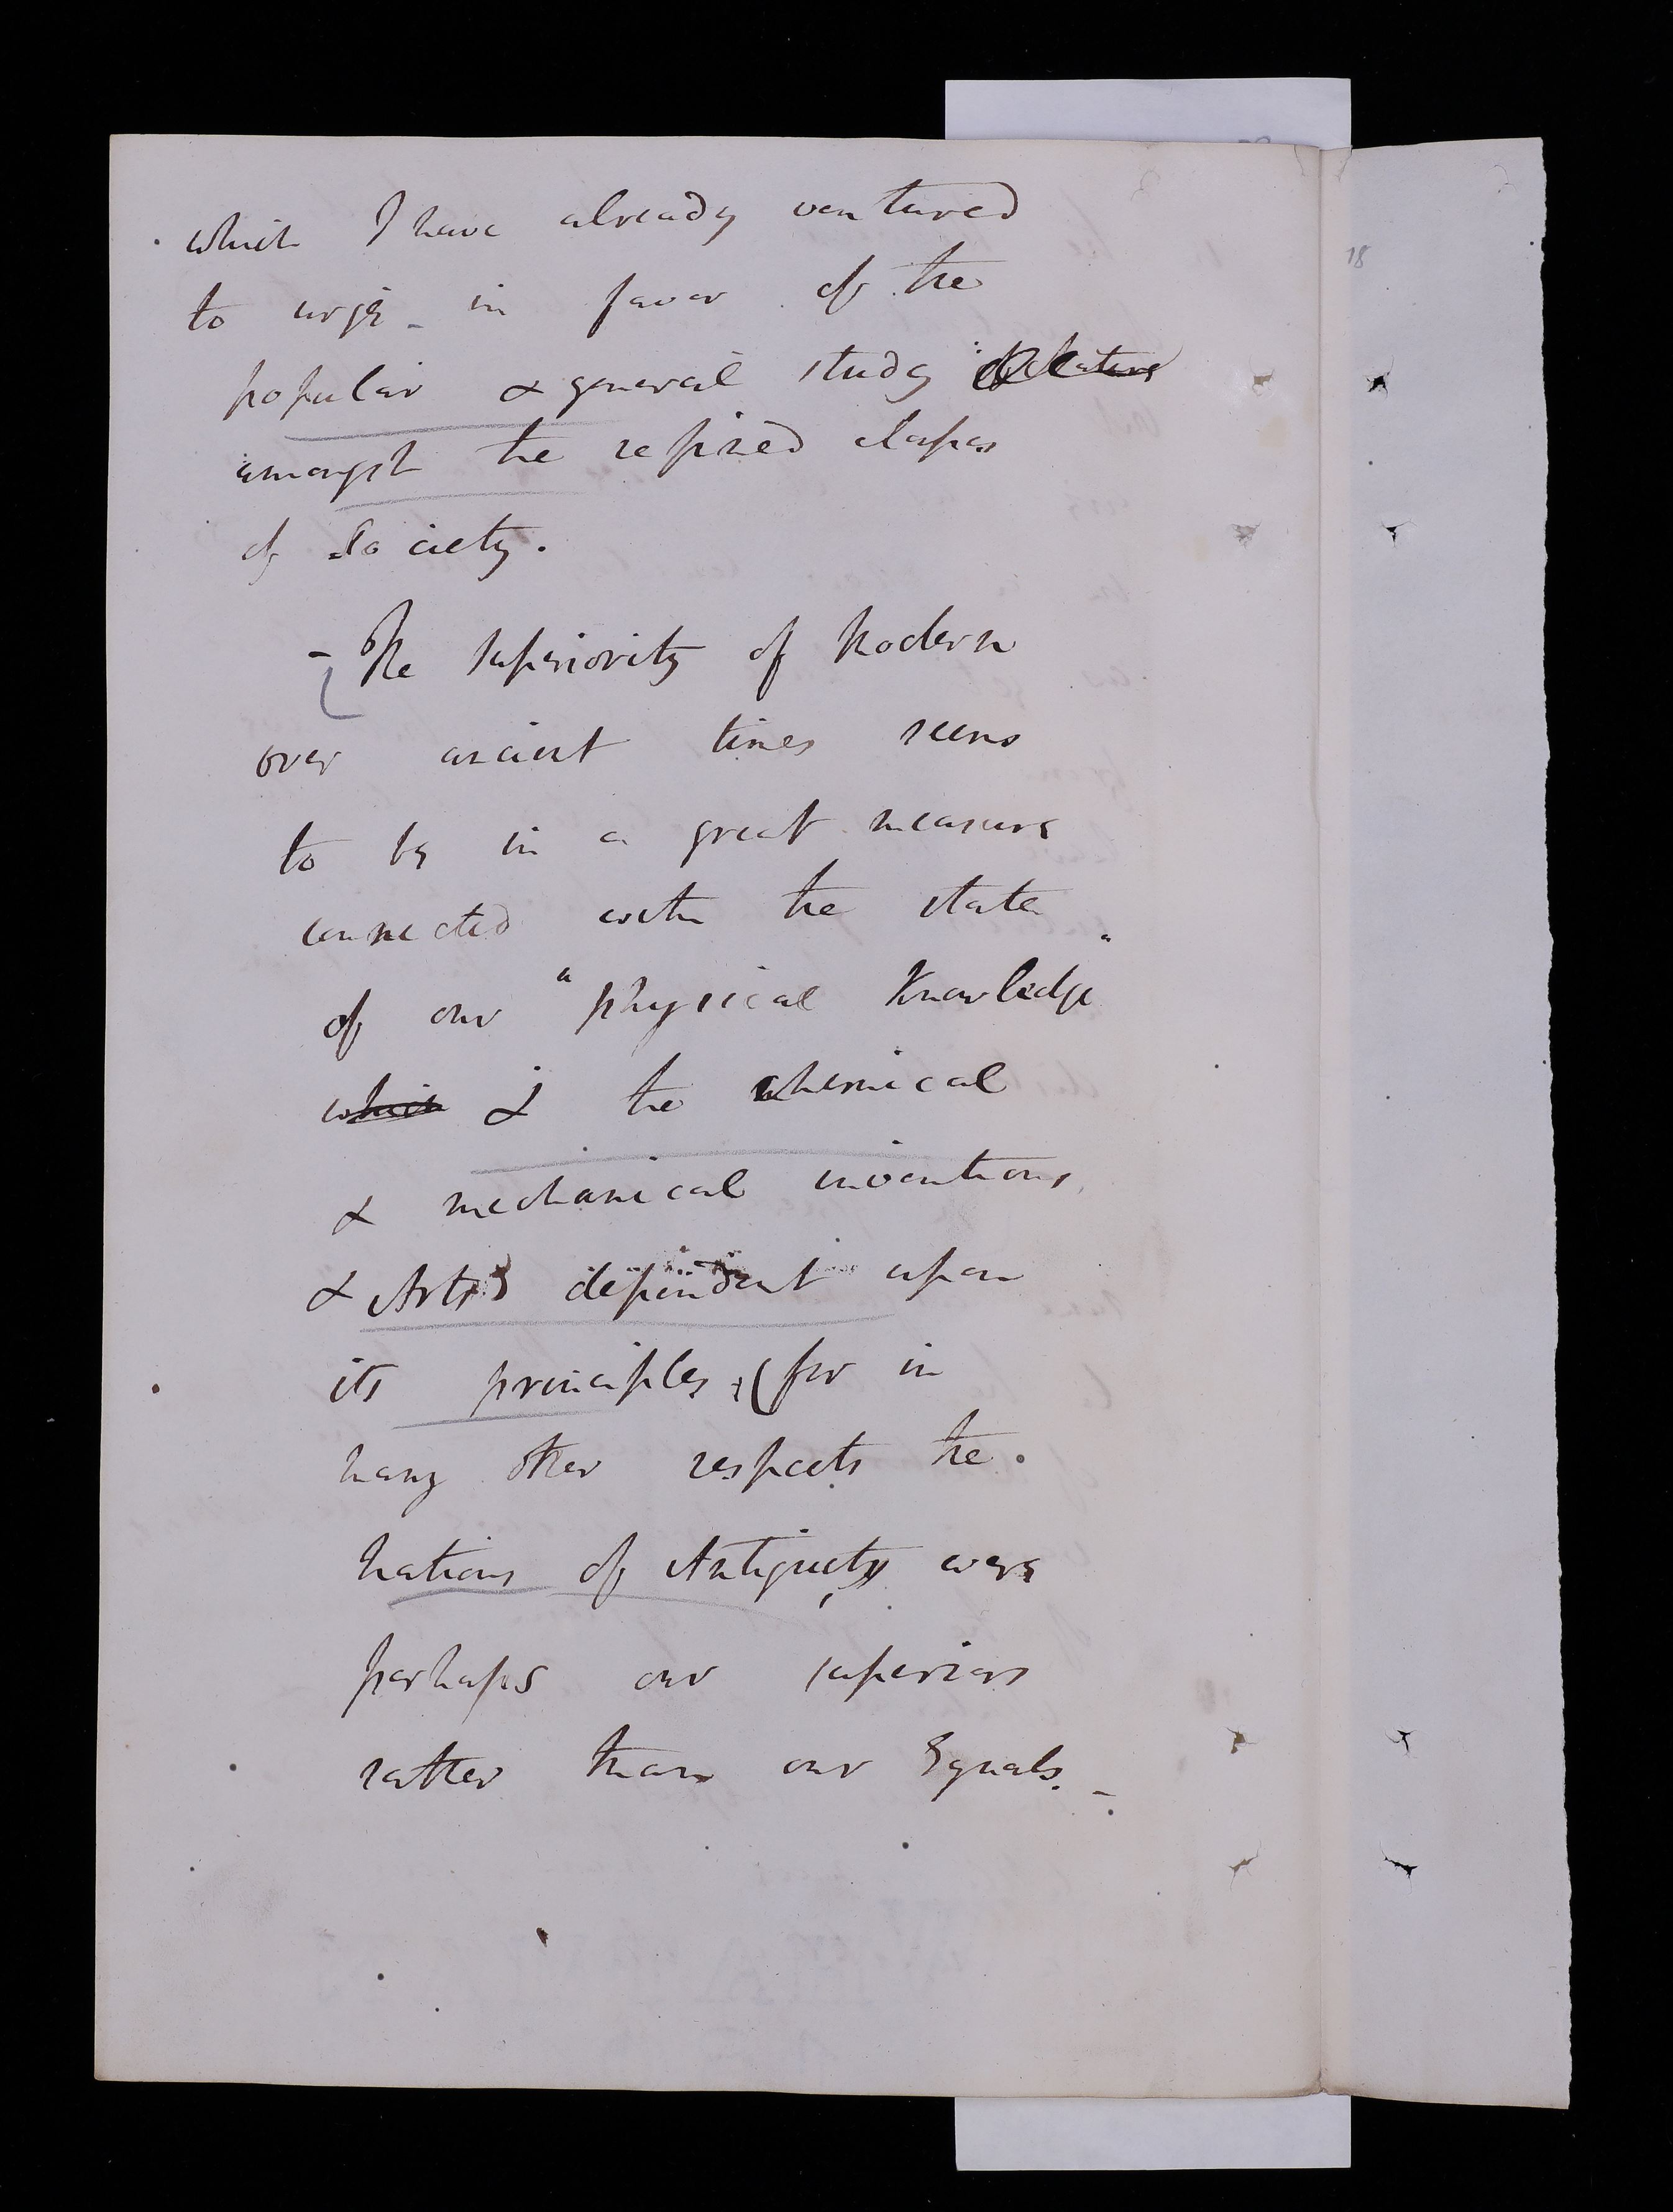 which I have already ventured
to urge - in favor of the
popular & general study
amongst the refined classes
of Society.
- The superiority of Modern
over ancient times seems
to be in a great measure
connected with the state
of our "physical Knowledge"
which & the chemical
& mechanical inventions,
& Arts dependent upon
its principles, (for in
many other respects the
Nations of Antiquity were
perhaps our superiors
rather than our Equals. -
18